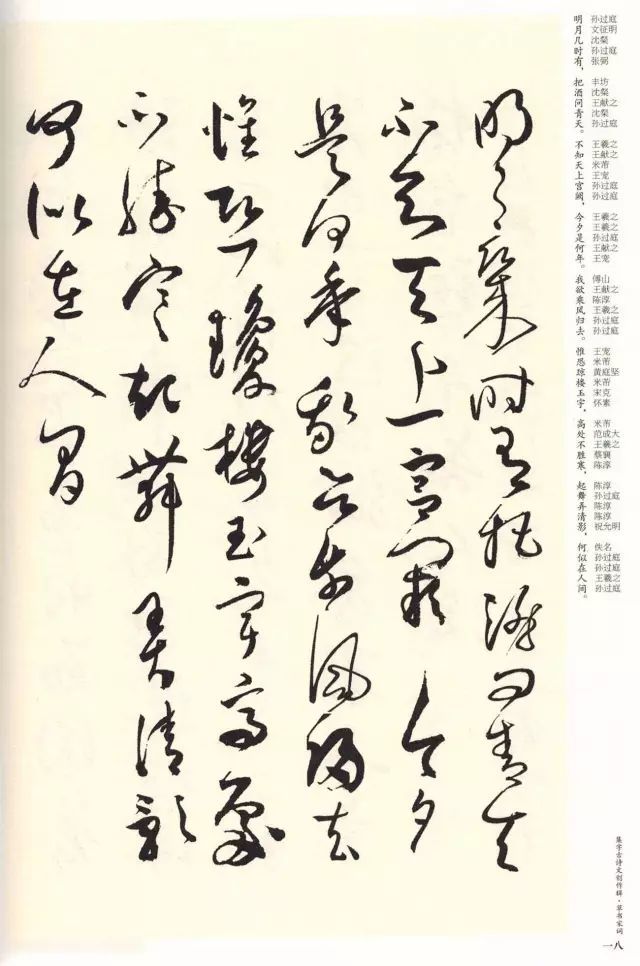 明月幾時有把酒問青天
不知天上宮闕今夕
是何年我欲乘風歸去
惟恐瓊樓玉宇高處
不勝寒起舞弄清影
何似在人間
明月几时有，把酒问青天。不知天上宫阙，今夕是何年。我欲乘风归去。惟恐琼楼玉宇，高处不胜寒，起舞弄清影，何似在人间。
孙过庭
文征明
沈粲
孙过庭
张弼
丰坊
沈粲
王献之
沈粲
孙过庭
王羲之
王献之
米芾
王宠
孙过庭
孙过庭
王羲之
王羲之
孙过庭
王献之
王宠
傅山
王献之
陈淳
王羲之
孙过庭
孙过庭
王宠
米芾
黄庭坚
米芾
宋克
怀素
米芾
范成大
王羲之
蔡襄
陈淳
陈淳
孙过庭
陈淳
陈淳
祝允明
佚名
孙过庭
孙过庭
王羲之
孙过庭
集字古诗文创作辑·草书宋词
一八